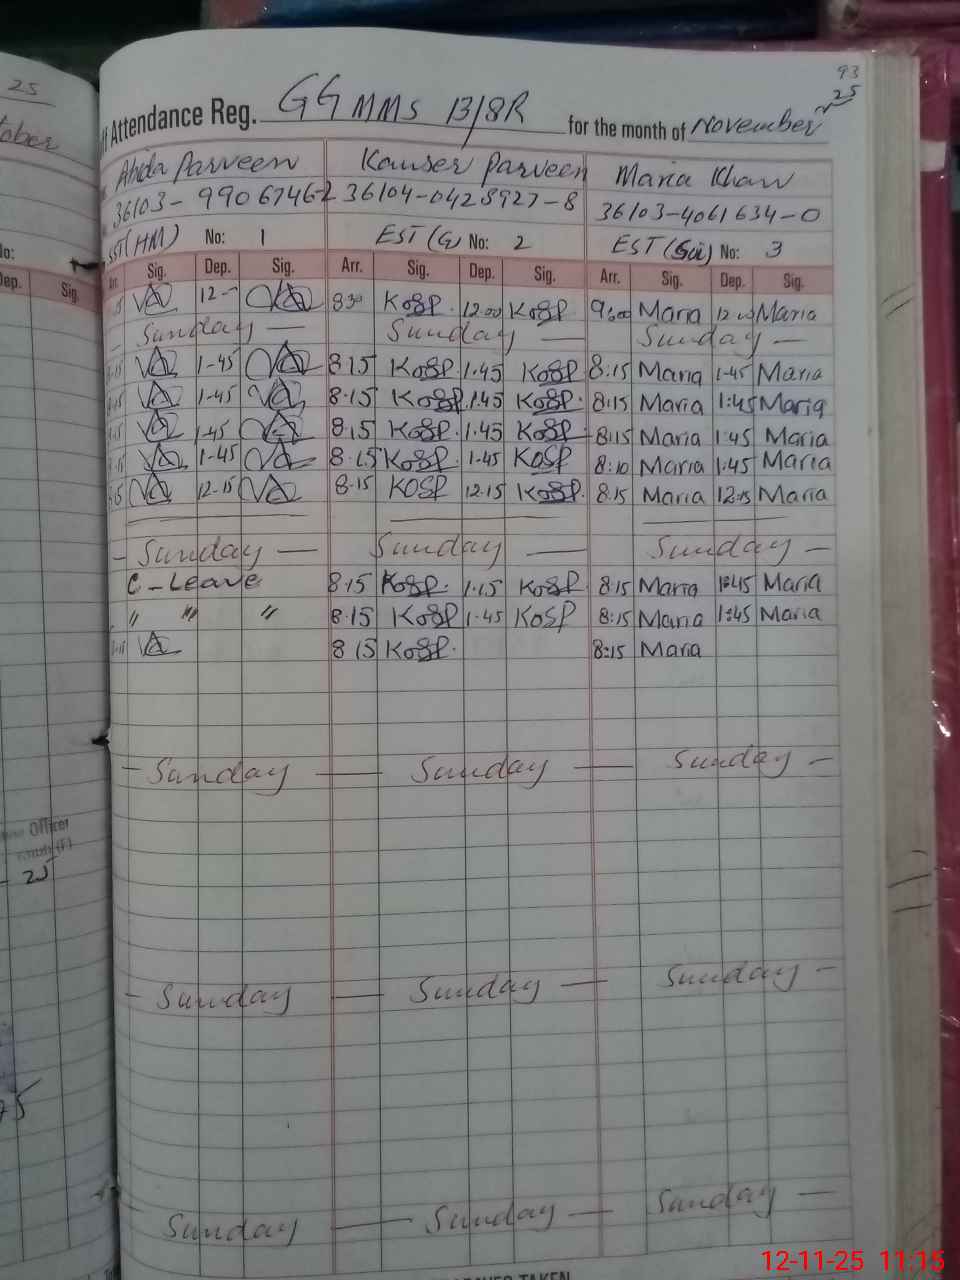 93
25
25
Attendance Reg. GGMMS 13/8R for the month of November
Abida Parveen Kauser Parveen Maria Khan
36103-9906746-2 36104-0428927-8 36103-4061634-0
SST(HM) No: 1 EST(G) No: 2 EST (Sci) No: 3
Arr. Sig. Dep. Sig. Arr. Sig. Dep. Sig. Arr. Sig. Dep. Sig.
12- 830 KOSP. 12.00 KOSP 9:00 Maria 12:00 Maria
Sunday — Sunday — Sunday —
1-45 8.15 KOSP 1.45 KOSP 8:15 Maria 1:45 Maria
1-45 8.15 KOSP. 1.45 KOSP. 8:15 Maria 1:45 Maria
1-45 8.15 KOSP. 1.45 KOSP 8:15 Maria 1:45 Maria
1-45 8.15 KOSP. 1.45 KOSP 8:10 Maria 1:45 Maria
12.15 8.15 KOSP 12.15 KOSP. 8:15 Maria 12:15 Maria
— Sunday — Sunday — Sunday —
C-Leave 8.15 KOSP. 1.15 KOSP. 8:15 Maria 1:45 Maria
" " " 8.15 KOSP 1.45 KOSP 8:15 Maria 1:45 Maria
8.15 KOSP. 8:15 Maria
— Sunday — Sunday — Sunday —
Officer
25
— Sunday — Sunday — Sunday —
Sunday — Sunday — Sunday —
12-11-25 11:15